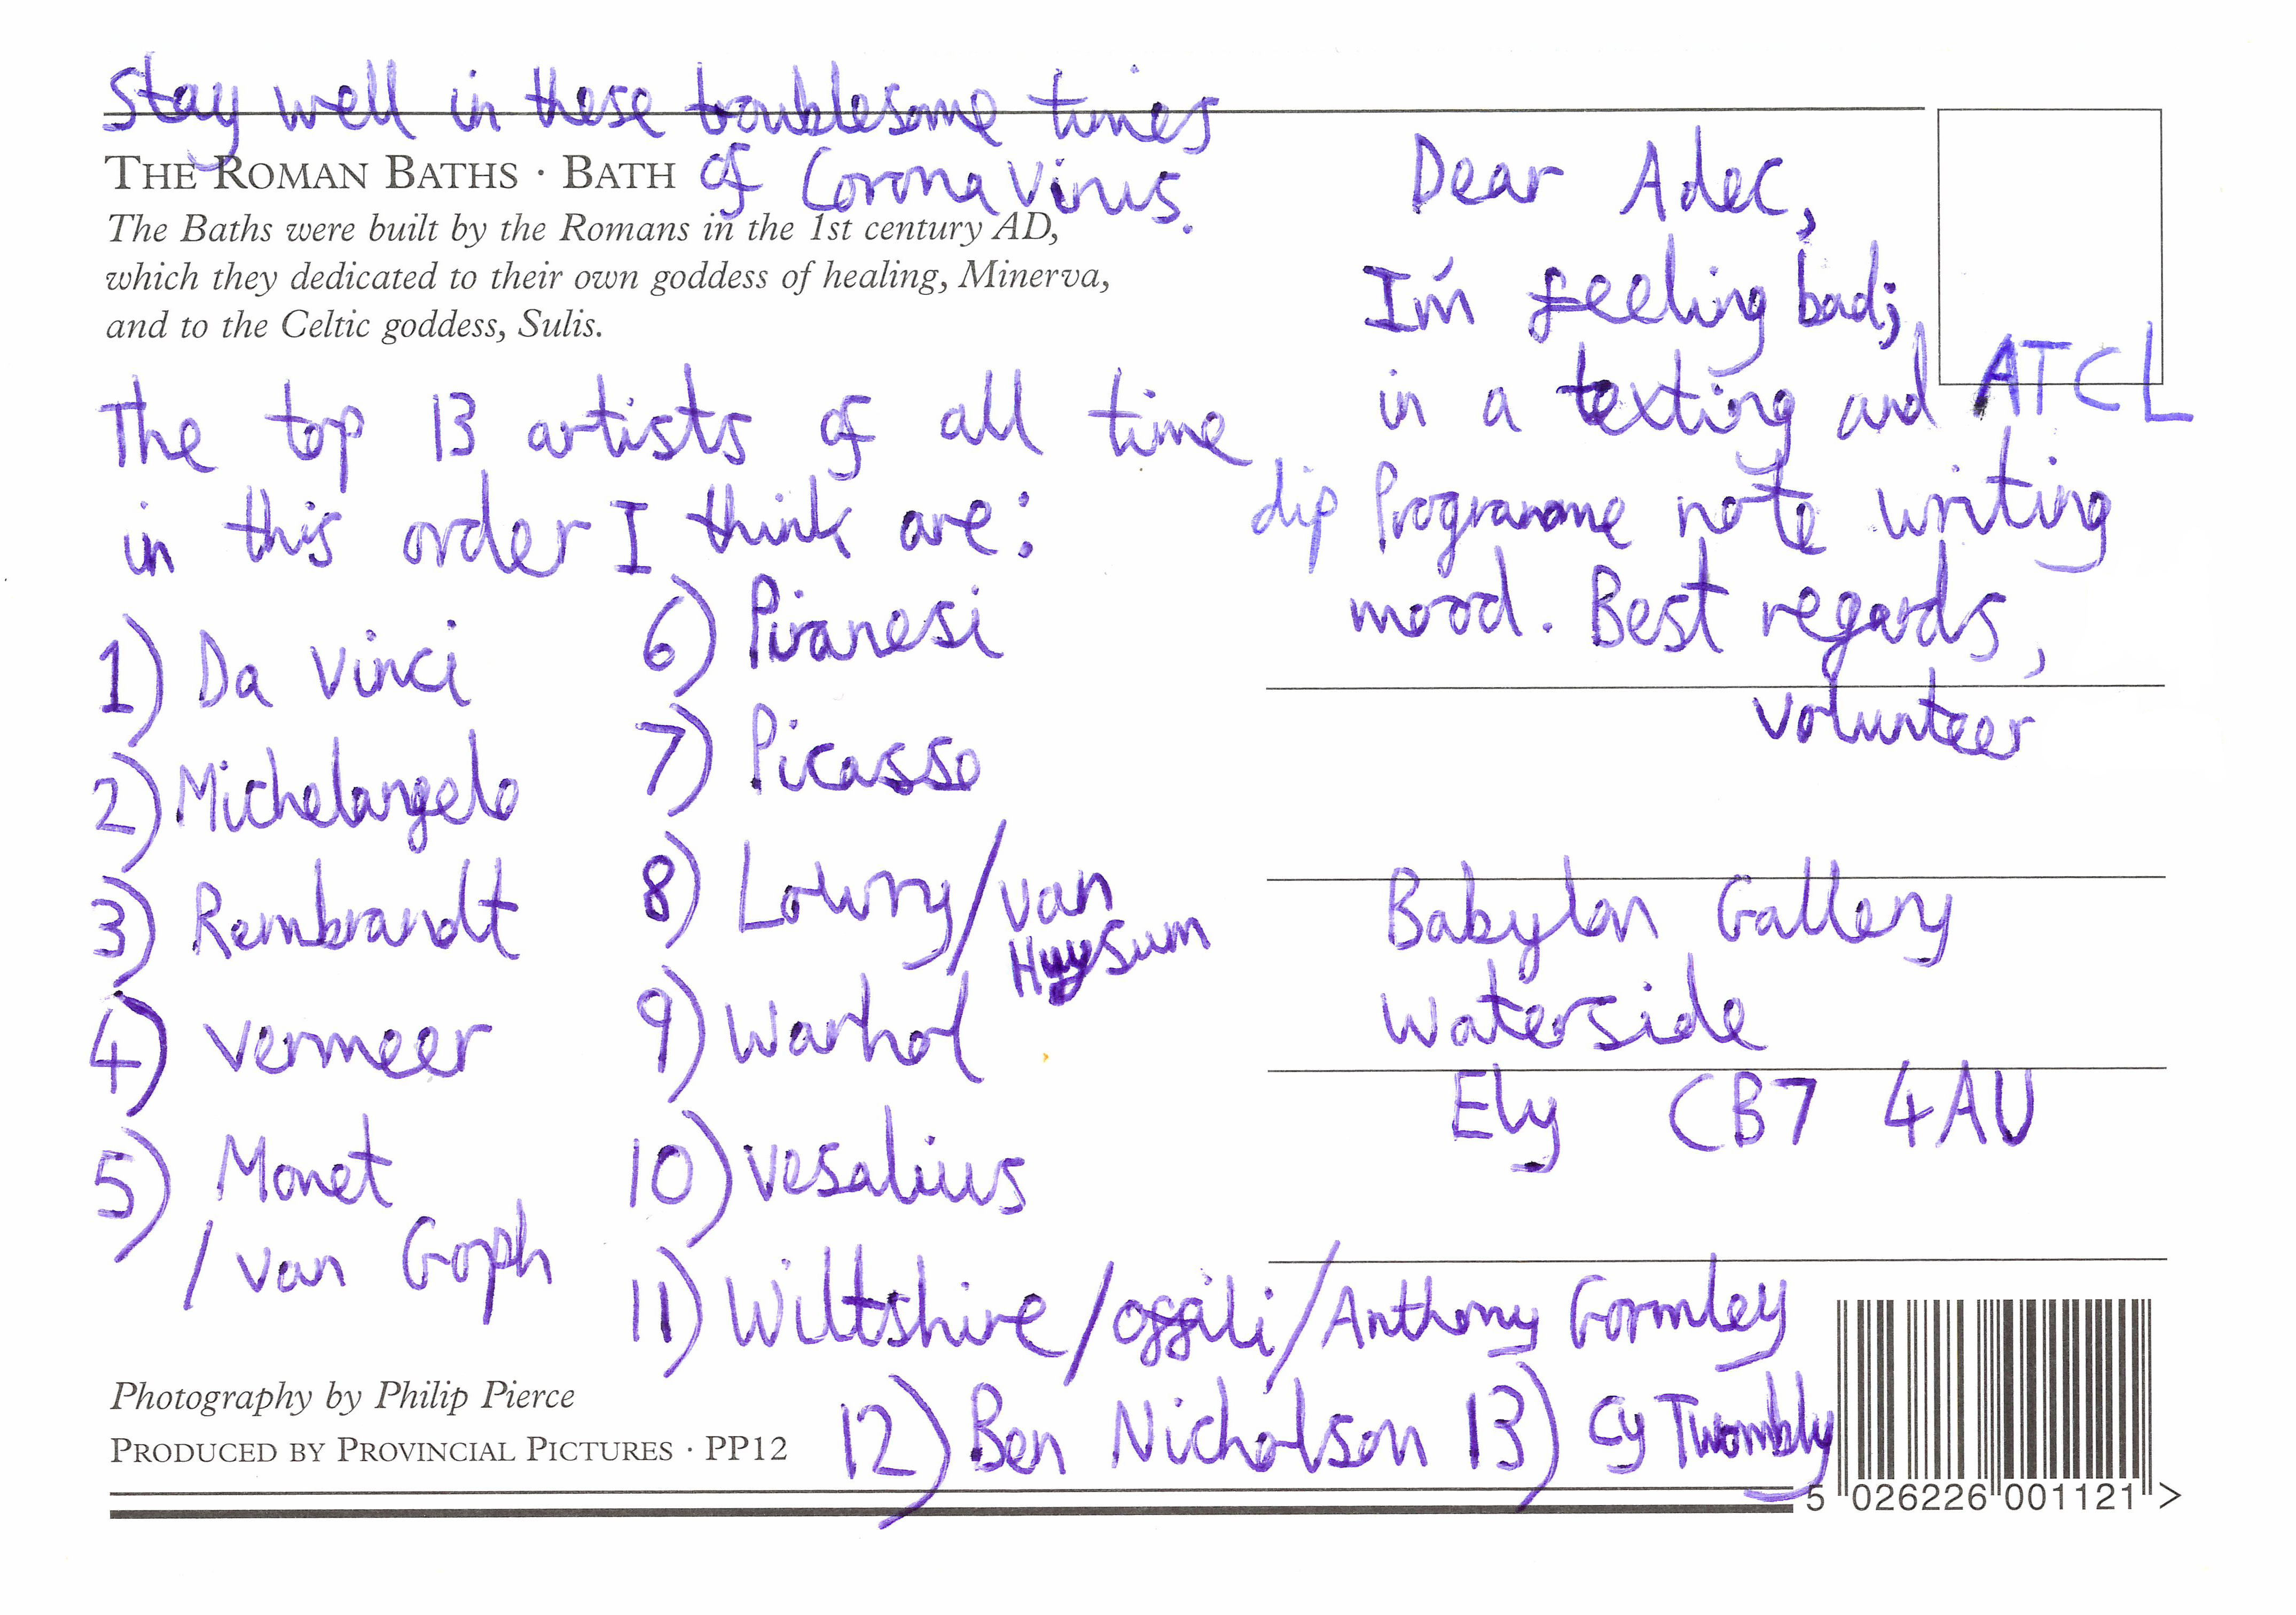 Stay well in these troublesome times
of Corona Virus.
THE ROMAN BATHS · BATH
The Baths were built by the Romans in the 1st century AD,
which they dedicated to their own goddess of healing, Minerva,
and to the Celtic goddess, Sulis.
The top 13 artists of all time
in this order I think are:
1) Da Vinci
2) Michelangelo
3) Rembrandt
4) Vermeer
5) Monet
/ Van Goph
6) Piranesi
7) Picasso
8) Lowry/Van
Huysum
9) Warhol
10) Vesalius
11) Wiltshire/Offili/Anthony Gormley
12) Ben Nicholson 13) Cy Twombly
Photography by Philip Pierce
PRODUCED BY PROVINCIAL PICTURES · PP12
Dear Adec,
I'm feeling bad;
in a texting and ATCL
dip Programme note writing
mood. Best regards,
Volunteer
Babylon Gallery
Waterside
Ely CB7 4AU
5 026226 001121 >